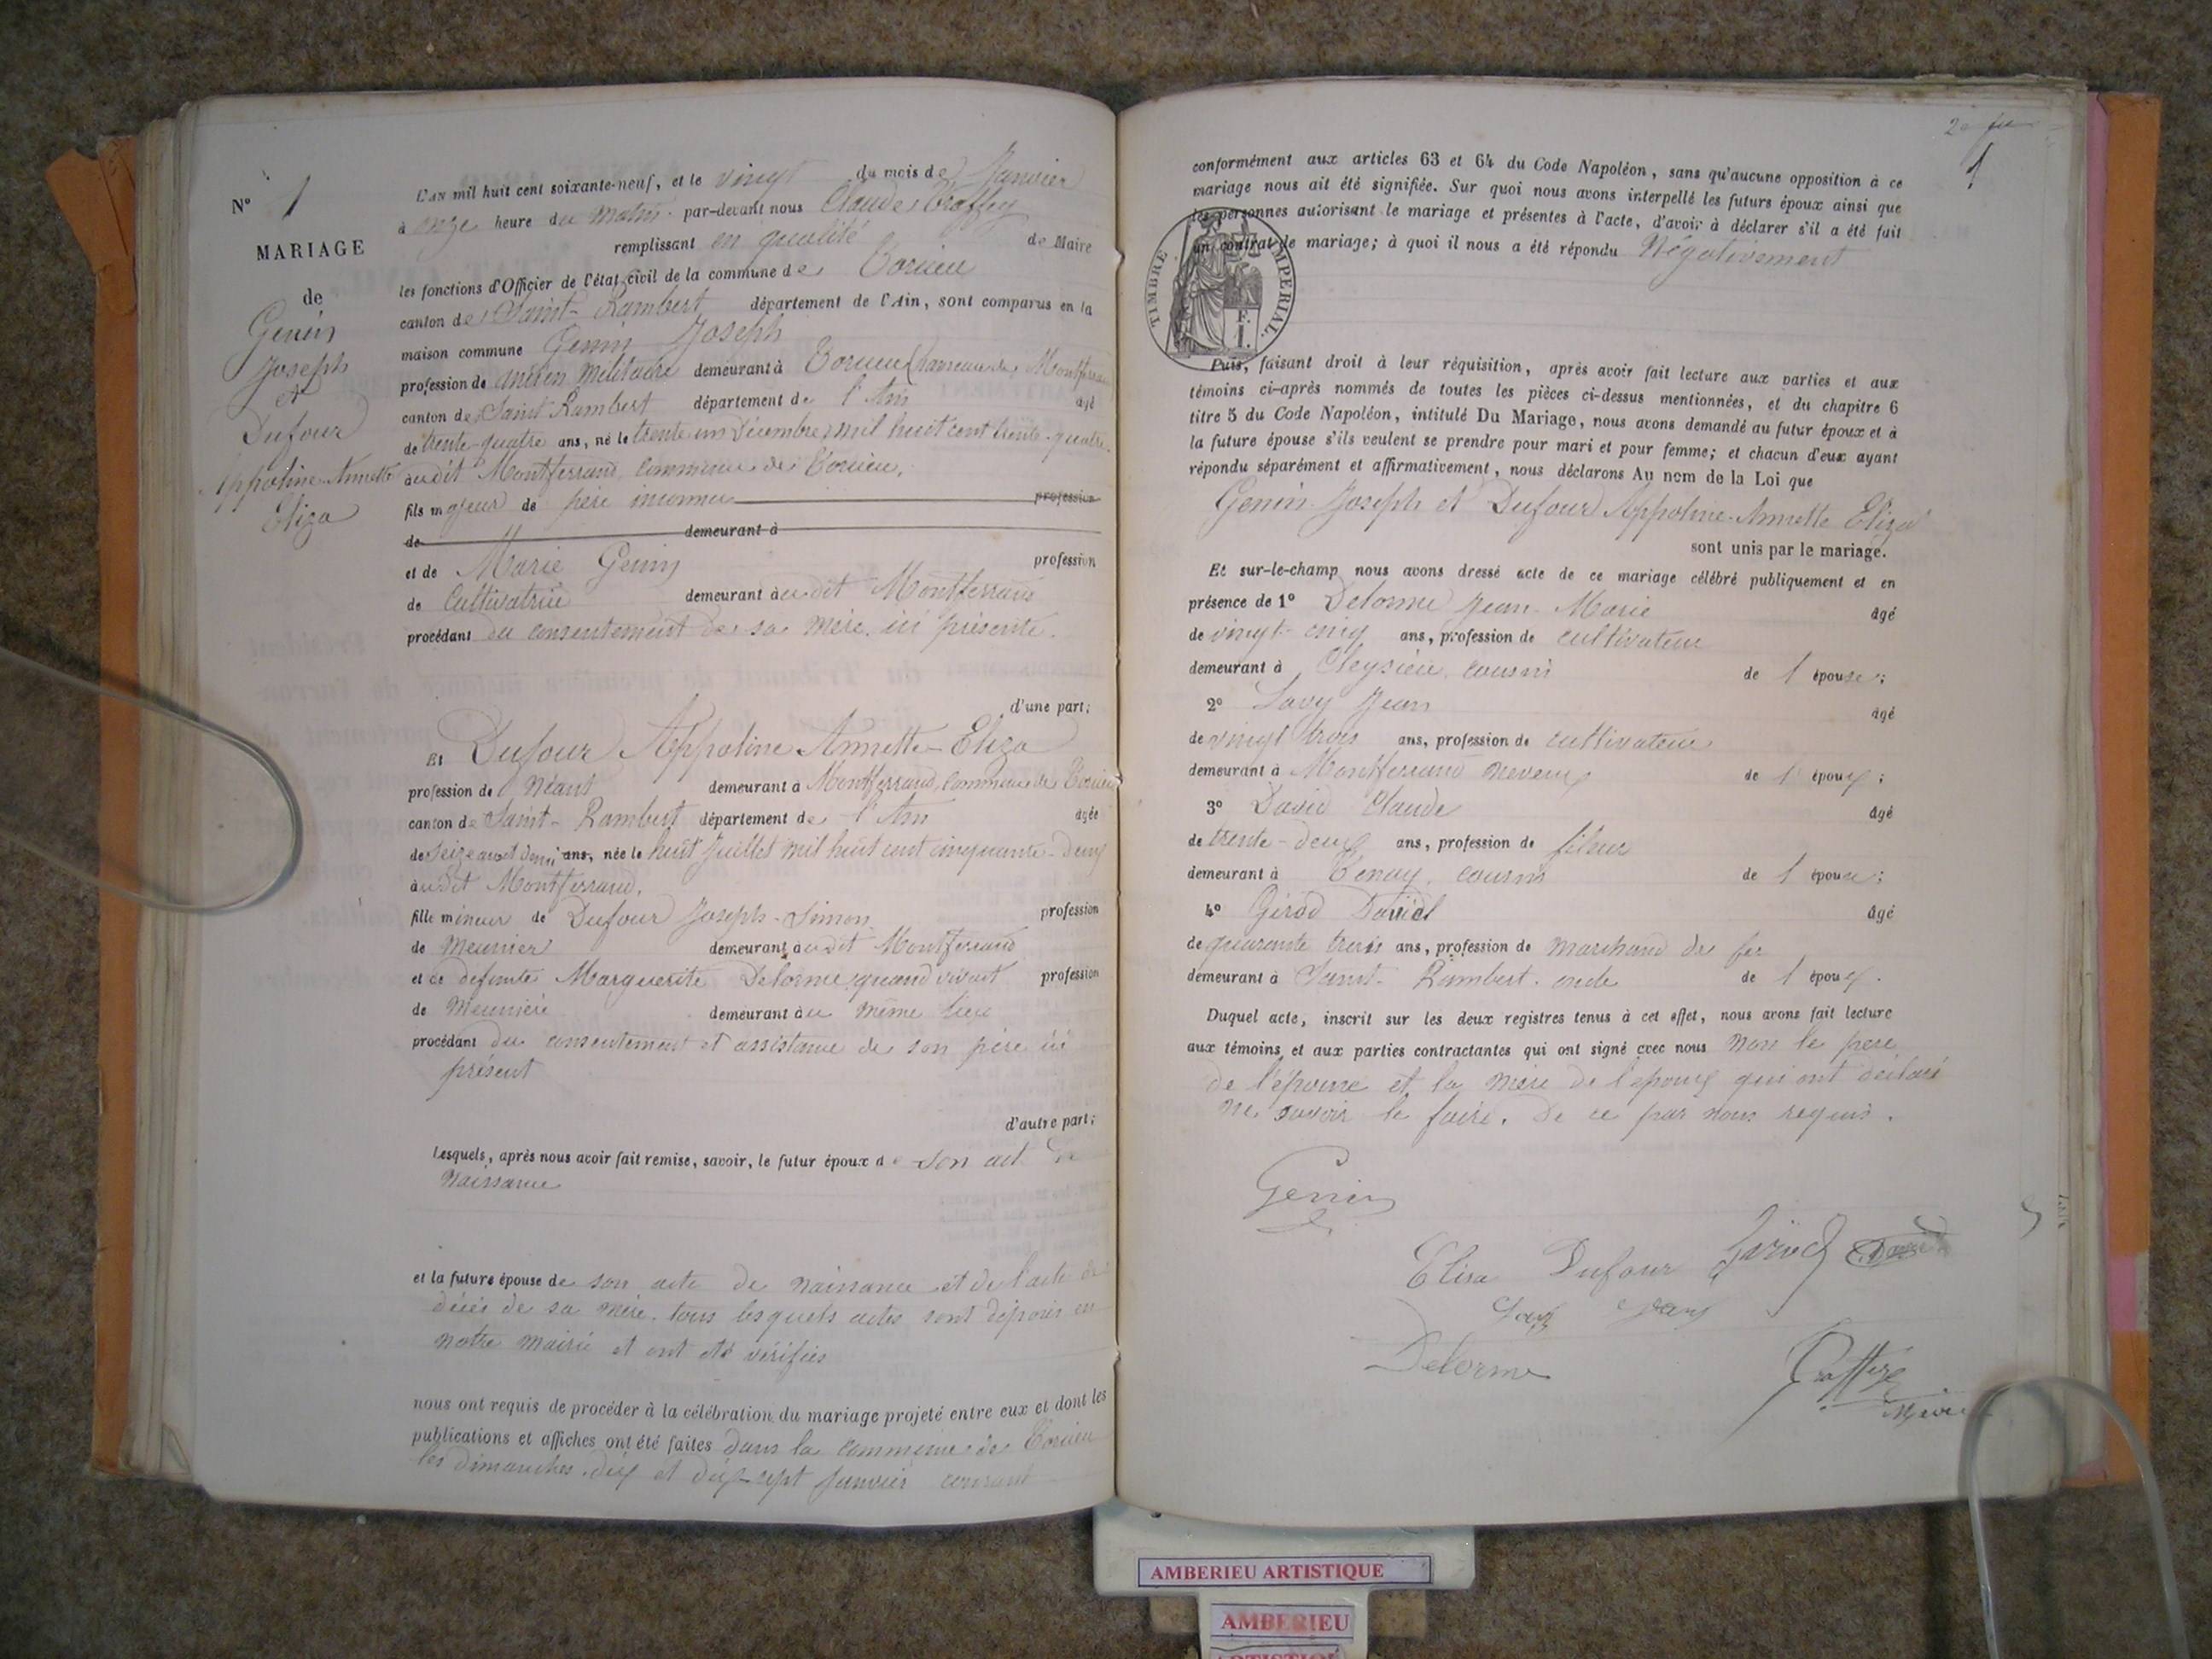 N° 1
MARIAGE
de
Genin
Joseph
et
Dufour
Appoline Annette
Eliza
L'AN mil huit cent soixante-neuf, et le vingt du mois de Janvier
à onze heure du matin par-devant nous Claude
remplissant en qualité de Maire
les fonctions d'Officier de l'état civil de la commune de Torcieu
canton de Saint-Rambert département de l'Ain, sont comparus en la
maison commune Genin Joseph
profession de ancien militaire demeurant à Torcieu (hameau de Montferrand
canton de Saint Rambert département de l'Ain âgé
de trente-quatre ans, né le trente un décembre mil huit cent trente-quatre
audit Montferrand, commune de Torcieu.
fils majeur de père inconnu profession
de demeurant à
et de Marie Genin profession
de cultivatrice demeurant audit Montferrand
procédant du consentement de sa mère ici présente.
d'une part;
Et Dufour Appoline Annette-Eliza
profession de Néant demeurant à Montferrand, commune de Torcieu
canton de Saint-Rambert département de l'Ain âgée
de seize ans et demi ans, née le huit Juillet mil huit cent cinquante-deux
audit Montferrand.
fille mineur de Dufour Joseph-Simon profession
de meunier demeurant audit Montferrand
et de défunte Marguerite Delorme, quand vivait profession
de meunière demeurant au même lieu
procédant du consentement et assistance de son père ici
présent
d'autre part;
Lesquels, après nous avoir fait remise, savoir, le futur époux de son act de
naissance
et la future épouse de son acte de naissance et de l'acte de
décès de sa mère. tous lesquels actes sont déposés en
notre mairie et ont été vérifiés
nous ont requis de procéder à la célébration du mariage projeté entre eux et dont les
publications et affiches ont été faites dans la commune de Torcieu
les dimanches dix et dix-sept Janvier courant
1
conformément aux articles 63 et 64 du Code Napoléon, sans qu'aucune opposition à ce
mariage nous ait été signifiée. Sur quoi nous avons interpellé les futurs époux ainsi que
les personnes autorisant le mariage et présentes à l'acte, d'avoir à déclarer s'il a été fait
un contrat de mariage; à quoi il nous a été répondu Négativement
TIMBRE IMPERIAL.
F.
1.
Puis, faisant droit à leur réquisition, après avoir fait lecture aux parties et aux
témoins ci-après nommés de toutes les pièces ci-dessus mentionnées, et du chapitre 6
titre 5 du Code Napoléon, intitulé Du Mariage, nous avons demandé au futur époux et à
la future épouse s'ils veulent se prendre pour mari et pour femme; et chacun d'eux ayant
répondu séparément et affirmativement, nous déclarons Au nom de la Loi que
Genin Joseph et Dufour Appoline-Annette Eliza
sont unis par le mariage.
Et sur-le-champ nous avons dressé acte de ce mariage célébré publiquement et en
présence de 1° Delorme Jean-Marie âgé
de vingt-cinq ans, profession de cultivateur
demeurant à Cleyzieu, cousin de l'épouse;
2° Savy Jean âgé
de vingt trois ans, profession de cultivateur
demeurant à Montferrand neveu de l'époux;
3° David Claude âgé
de trente-deux ans, profession de fileur
demeurant à Tenay. cousin de l'épouse;
4° Girod David âgé
de quarante trois ans, profession de marchand de fer
demeurant à Saint-Rambert. oncle de l'époux.
Duquel acte, inscrit sur les deux registres tenus à cet effet, nous avons fait lecture
aux témoins et aux parties contractantes qui ont signé avec nous non le père
de l'épouse et la mère de l'époux qui ont déclaré
ne savoir le faire. De ce par nous requis.
Genin
Elisa Dufour Girod David
Savy Jean
Delorme
Maire
AMBERIEU ARTISTIQUE
AMBERIEU
ARTISTIQUE